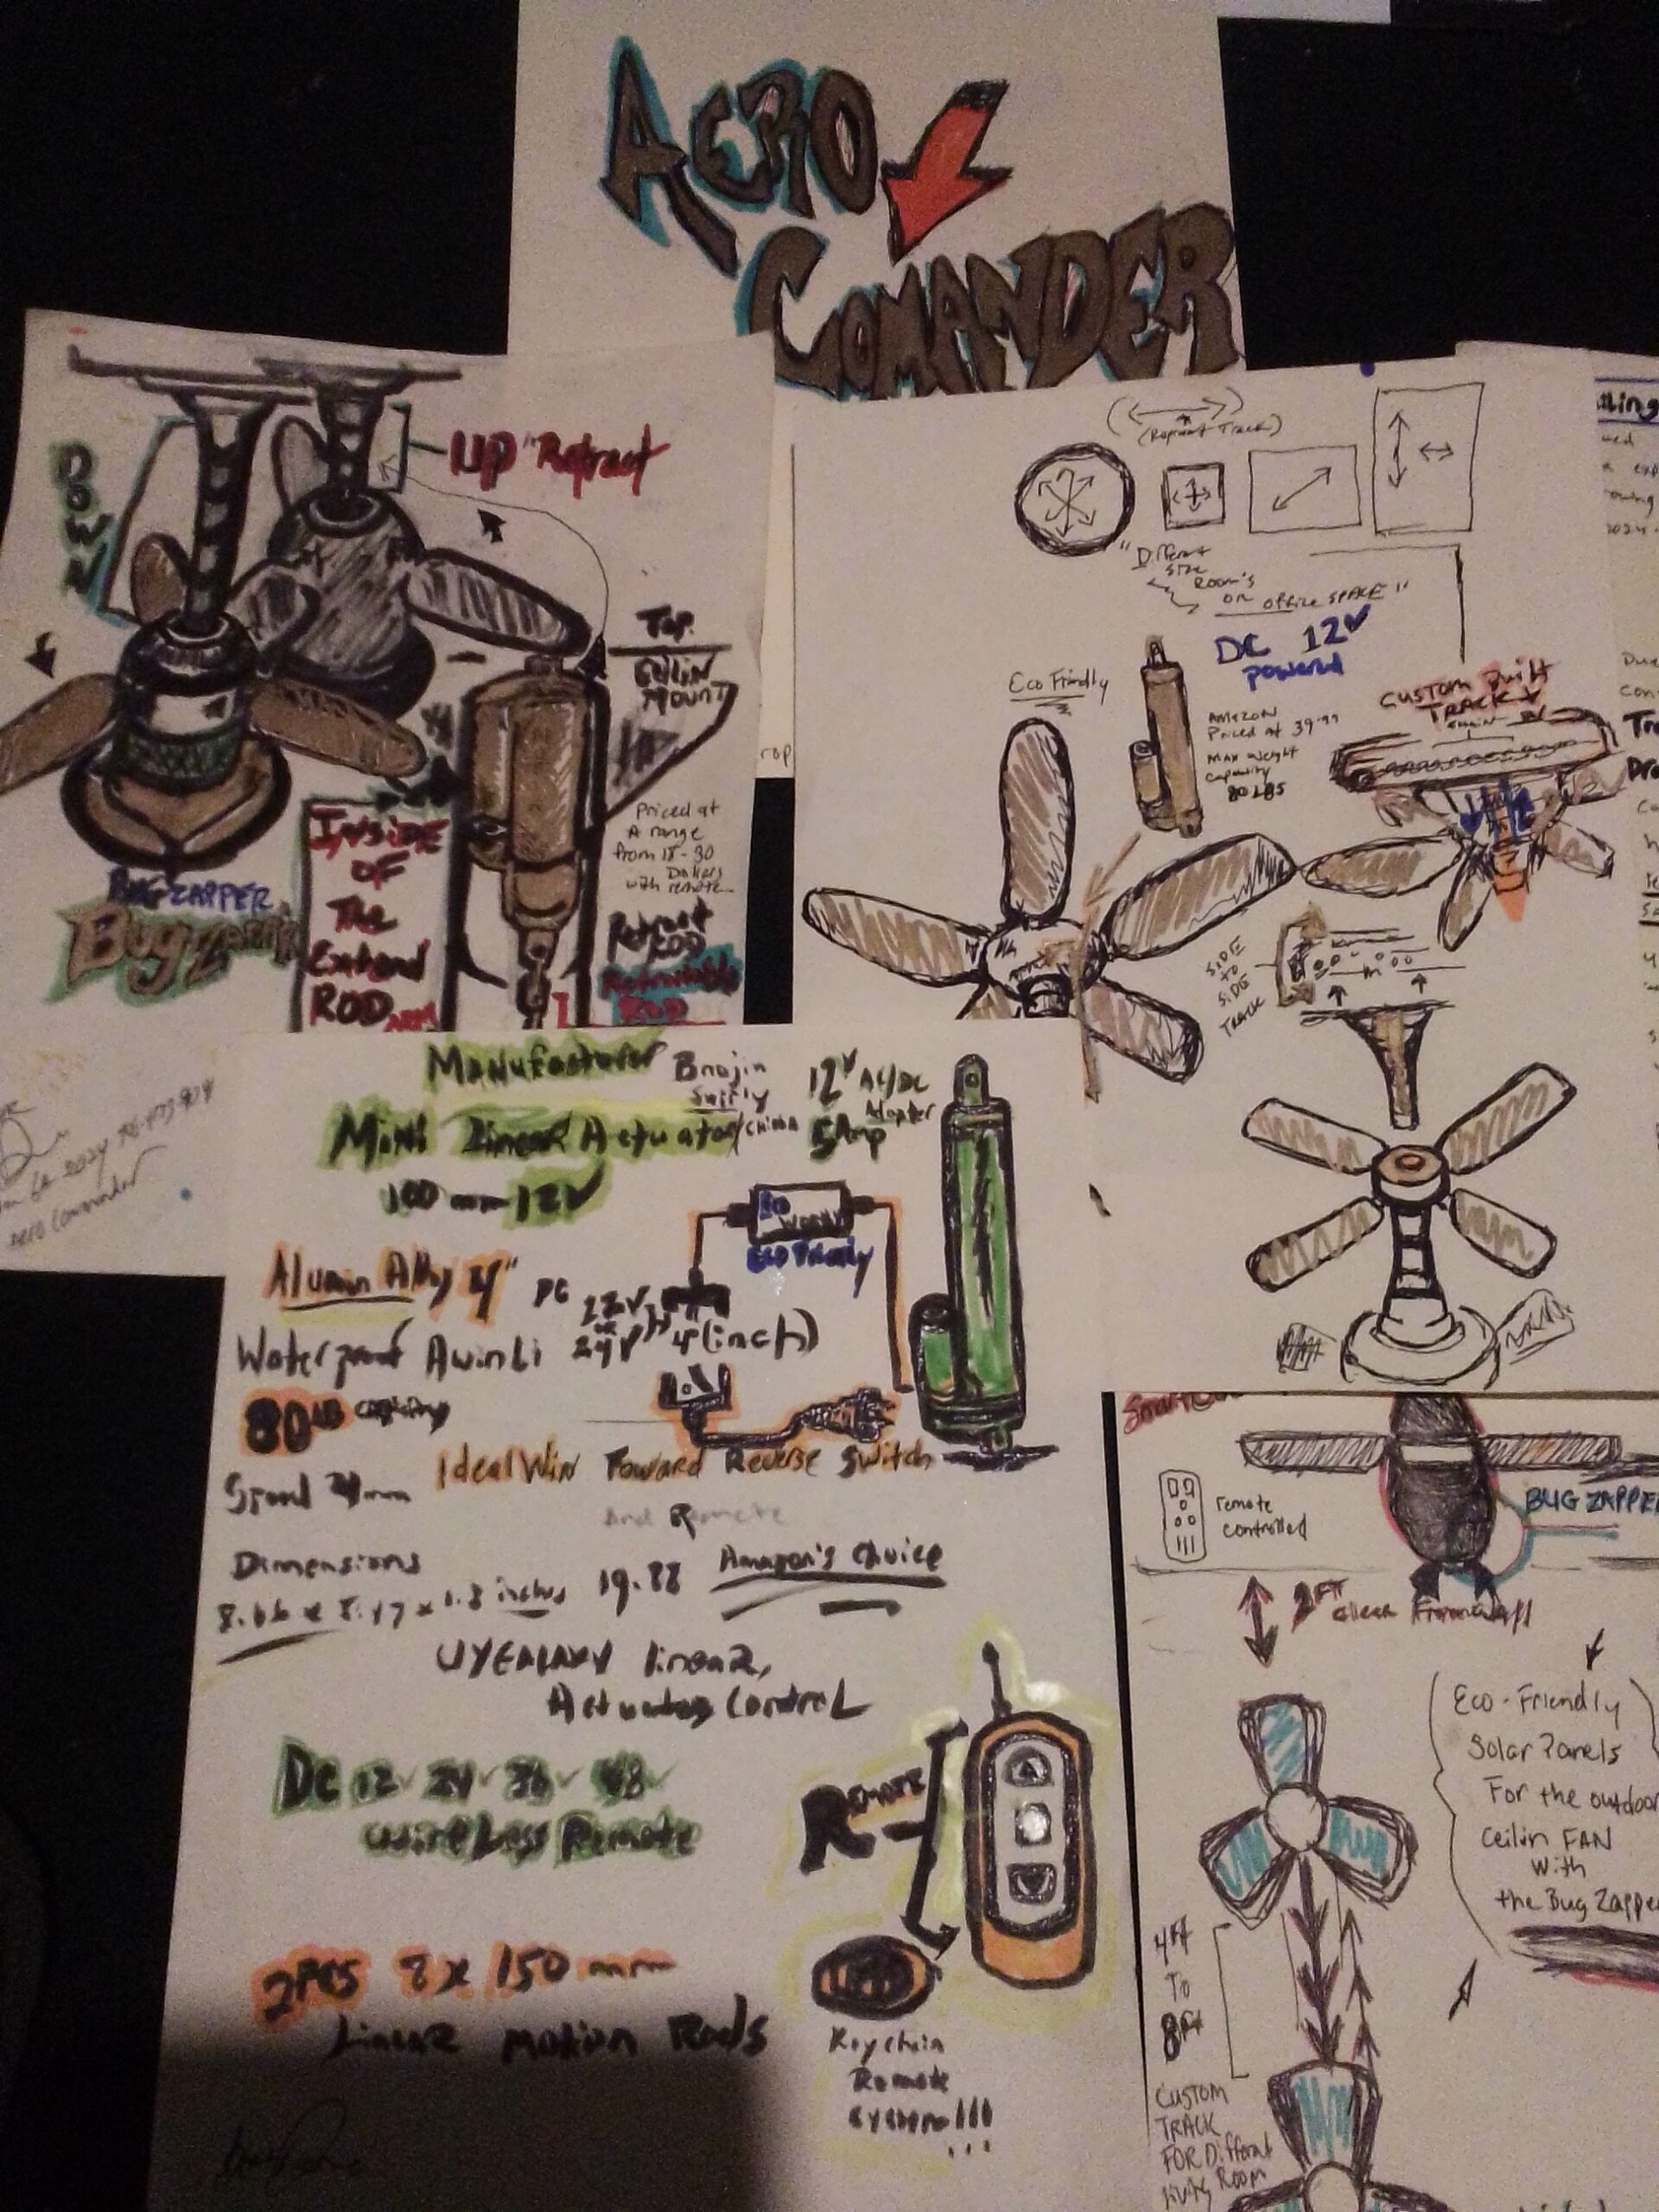 AERO
COMANDER
DOWN
UP Retract
Top
Ceilin
Mount
Priced at
A range
from 18-30
Dollars
with remote...
Retract
ROD
Retractable
ROD
INSIDE
OF
The
Extend
ROD ARM
BUG ZAPPER
Bug Zapper
Aero Commander
(Reprisent Track)
"Different
size
Room's
or
office SPACE"
DC 12V
powered
Eco Frindly
AMAZON
Priced at 39.99
MAX weight
capacity
80 LBS
Custom Built
TRACK
SIDE
TO
SIDE
TRACK
Manufacturer
Mini Linear Actuator/China
100 mm 12V
12V AC/DC
Adapter
5 Amp
Eco
Worthy
Eco Friendly
Alumin Alloy 4"
DC 12V
or
24V 4"(inch)
Waterproof
80 LB capacity
Ideal Win Foward Reverse Switch
And Remote
Dimensions
inches 19.88 Amazon's Choice
linear,
Actuator Control
DC 12 24 36 48
wireless Remote
REMOTE
2PCS 8 x 150 mm
Linear motion Rods
Keychain
Remote
remote
controlled
BUG ZAPPER
2FT
Eco-Friendly
Solar Panels
For the outdoor
Ceilin FAN
With
the Bug Zapper
4Ft
To
8Ft
CUSTOM
TRACK
FOR Differnt
living Room